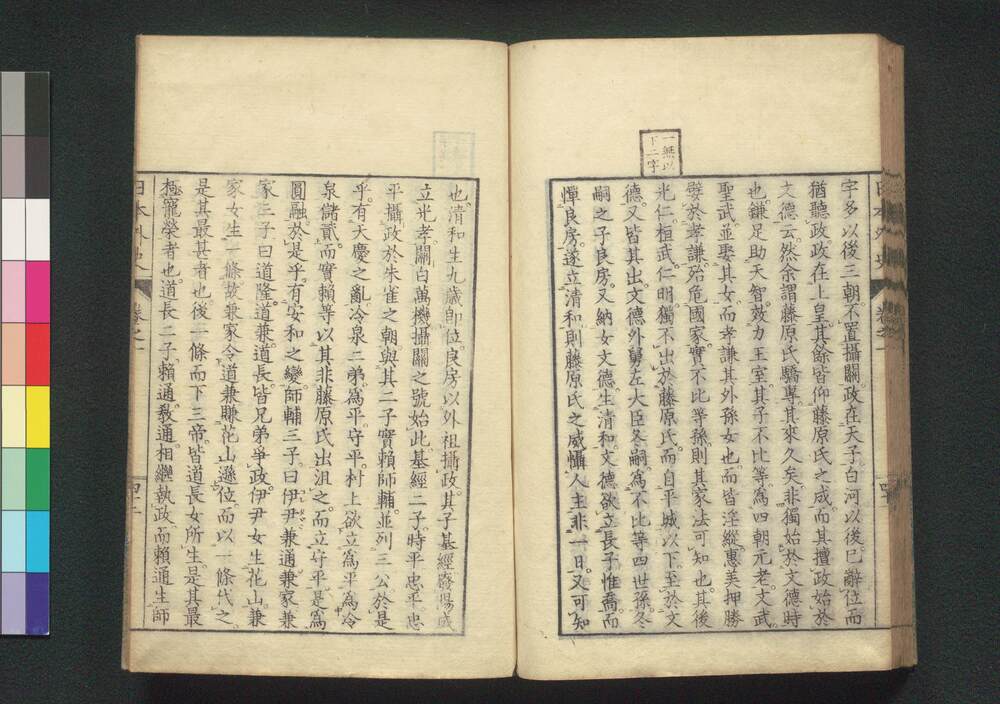 一無以
下二字
宇多以後三朝不置攝關政在天子白河以後已辭位而
猶聽政政在上皇其餘皆仰藤原氏之成而其擅政始於
文德云然余謂藤原氏驕擅其來久矣非獨始於文德時
也鎌足助天智效力王室其子不比等爲四朝元老文武
聖武並娶其女而孝謙其外孫女也而皆淫縱惠美押勝
嬖於孝謙殆危國家實不比等孫則其家法可知也其後
光仁桓武仁明獨不出於藤原氏而自平城以下至於文
德又皆其出文德外舅左大臣冬嗣爲不比等四世孫冬
嗣之子良房又納女文德生清和文德欲立長子惟喬而
憚良房遂立清和則藤原氏之威懾人主非一日又可知
也清和生九歲即位良房以外祖攝政其子基經廢陽成
立光孝關白萬機攝關之號始此基經二子時平忠平忠
平攝政於朱雀之朝與其二子實賴師輔並列三公於是
乎有天慶之亂冷泉二弟爲平守平村上欲立爲平爲冷
泉儲貳而實賴等以其非藤原氏出沮之而立守平是爲
圓融於是乎有安和之變師輔三子曰伊尹兼通兼家兼
家三子曰道隆道兼道長皆兄弟爭政伊尹女生花山兼
家女生一條故兼家令道兼賺花山遜位而以一條代之
是其最甚者也後一條而下三帝皆道長女所生是其最
極寵榮者也道長二子賴通敎通相繼執政而賴通生師
日本外史 卷之一 四十二